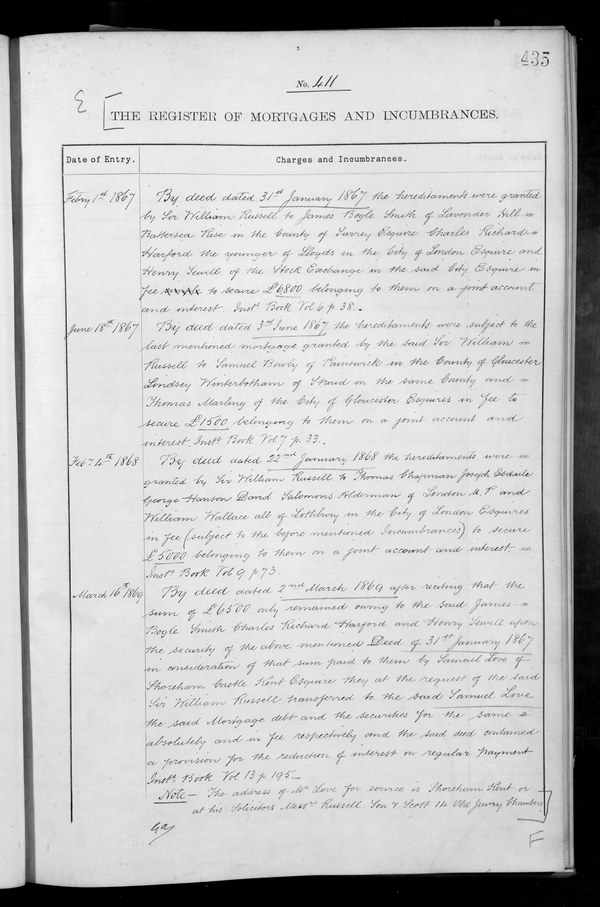 435
No. 411
E
THE REGISTER OF MORTGAGES AND INCUMBRANCES.
Date of Entry.
Charges and Incumbrances.
Febry 1st 1867
By deed dated 31st January 1867 the hereditaments were granted
by Sir William Russell to James Bogle Smith of Lavender Hill
Battersea Rise in the County of Surrey Esquire Charles Richard
Harford the younger of Lloyds in the City of London Esquire and
Henry Sewell of the Stock Exchange in the said City Esquire in
fee to secure £6800 belonging to them on a joint account
and interest. Instt Book Vol 6 p 38.
June 18th 1867
By deed dated 3rd June 1867 the hereditaments were subject to the
last mentioned mortgage granted by the said Sir William
Russell to Samuel Bowly of Painswick in the County of Gloucester
Lindsey Winterbotham of Stroud in the same County and
Thomas Marling of the City of Gloucester Esquires in fee to
secure £1500 belonging to them on a joint account and
interest. Instt Book Vol 7 p. 33.
Feby 4th 1868
By deed dated 22nd January 1868 the hereditaments were
granted by Sir William Russell to Thomas Chapman Joseph Esdaile
George Hanson David Salomons Alderman of London M.P. and
William Wallace all of Lothbury in the City of London Esquires
in fee (subject to the before mentioned Incumbrances) to secure
£5000 belonging to them on a joint account and interest
Instt Book Vol 9 p 73.
March 16th 1869
By deed dated 2nd March 1869 after reciting that the
sum of £6500 only remained owing to the said James
Bogle Smith Charles Richard Harford and Henry Sewell upon
the security of the above mentioned Deed of 31st January 1867
in consideration of that sum paid to them by Samuel Love of
Shoreham Castle Kent Esquire they at the request of the said
Sir William Russell transferred to the said Samuel Love
the said Mortgage debt and the securities for the same
absolutely and in fee respectively and the said deed contained
a provision for the reduction of interest on regular payment
Instt Book Vol 13 p 195.
Note - The address of Mr Love for service is Shoreham Kent or
at his Solicitors Messrs Russell Son & Scott 14 Old Jewry Chambers
F